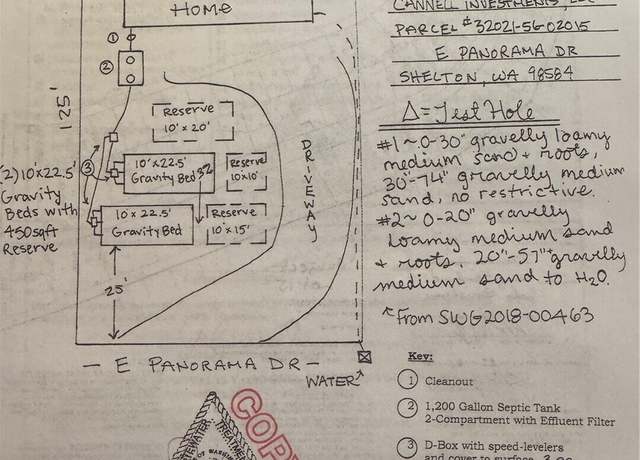 HOME
1
2
125'
Reserve
10' x 20'
3
10' x 22.5'
Gravity Bed
32
Reserve
10'x10'
(2) 10'x22.5'
Gravity
Beds with
450sqft
Reserve
10 x 22.5'
Gravity Bed
Reserve
10' x 15'
DRIVEWAY
25'
— E PANORAMA DR —
WATER
CANNELL INVESTMENTS, LLC
PARCEL # 32021-56-02015
E PANORAMA DR
SHELTON, WA 98584
Δ = Test Hole
#1 ~ 0-30" gravelly loamy
medium sand + roots,
30"-74" gravelly medium
sand, no restrictive.
#2 ~ 0-20" gravelly
loamy medium sand
+ roots. 20"-57"+ gravelly
medium sand to H2O.
From SWG2018-00463
Key:
1 Cleanout
2 1,200 Gallon Septic Tank
2-Compartment with Effluent Filter
3 D-Box with speed-levelers
and cover to surface
COPY